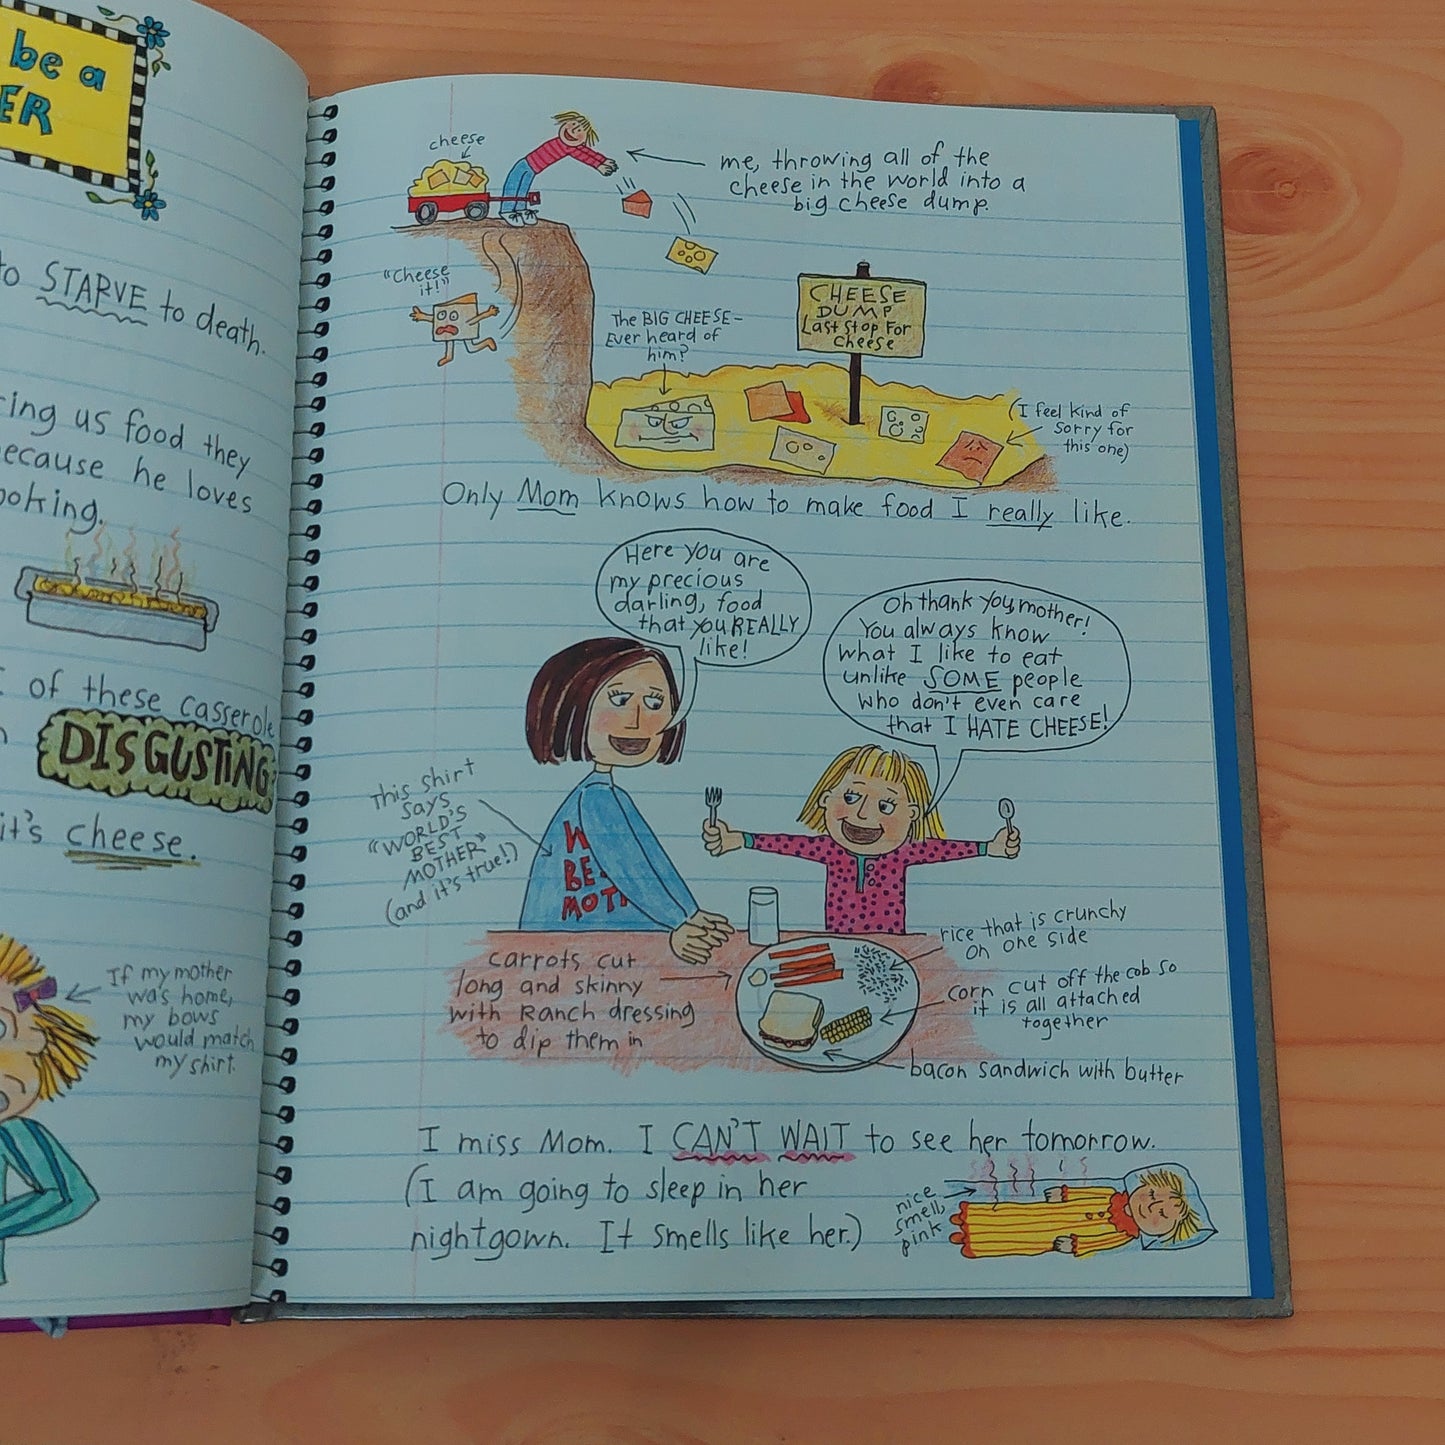 be a
ER
to STARVE to death.
ring us food they
ecause he loves
ooking.
t of these casserole
DISGUSTING
it's cheese.
If my mother
was home,
my bows
would match
my shirt.
cheese
me, throwing all of the
cheese in the world into a
big cheese dump.
"Cheese
it!"
The BIG CHEESE-
Ever heard of
him?
CHEESE
DUMP
Last Stop For
Cheese
(I feel kind of
sorry for
this one)
Only Mom knows how to make food I really like.
Here you are
my precious
darling, food
that you REALLY
like!
Oh thank you, mother!
You always know
what I like to eat
unlike SOME people
who don't even care
that I HATE CHEESE!
This shirt
says
"WORLD'S
BEST
MOTHER"
(and it's true!)
W
BE
MOT
carrots cut
long and skinny
with Ranch dressing
to dip them in
rice that is crunchy
on one side
corn cut off the cob so
it is all attached
together
bacon sandwich with butter
I miss Mom. I CAN'T WAIT to see her tomorrow.
(I am going to sleep in her
nightgown. It smells like her.)
nice
smell,
pink